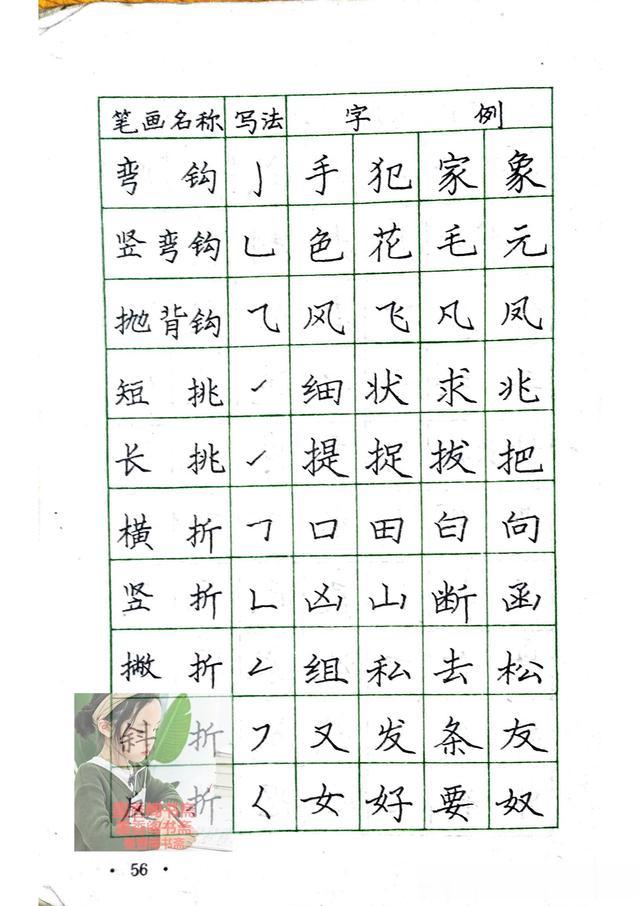 笔画名称 写法 字 例
弯 钩 亅 手 犯 家 象
竖弯钩 乚 色 花 毛 元
抛背钩 ⺄ 风 飞 凡 凤
短 挑 ㇀ 细 状 求 兆
长 挑 ㇀ 提 捉 拔 把
横 折 𠃍 口 田 白 向
竖 折 𠃊 凶 山 断 函
撇 折 ㄥ 组 私 去 松
斜 折 ㇇ 又 发 条 友
折 ㄑ 女 好 要 奴
· 56 ·